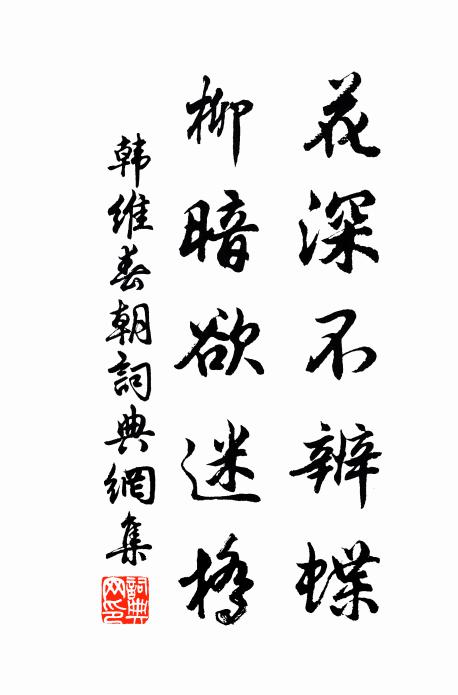 花深不辨蝶
柳暗欲迷橋
韩維春朝詞典網集
詞典網印